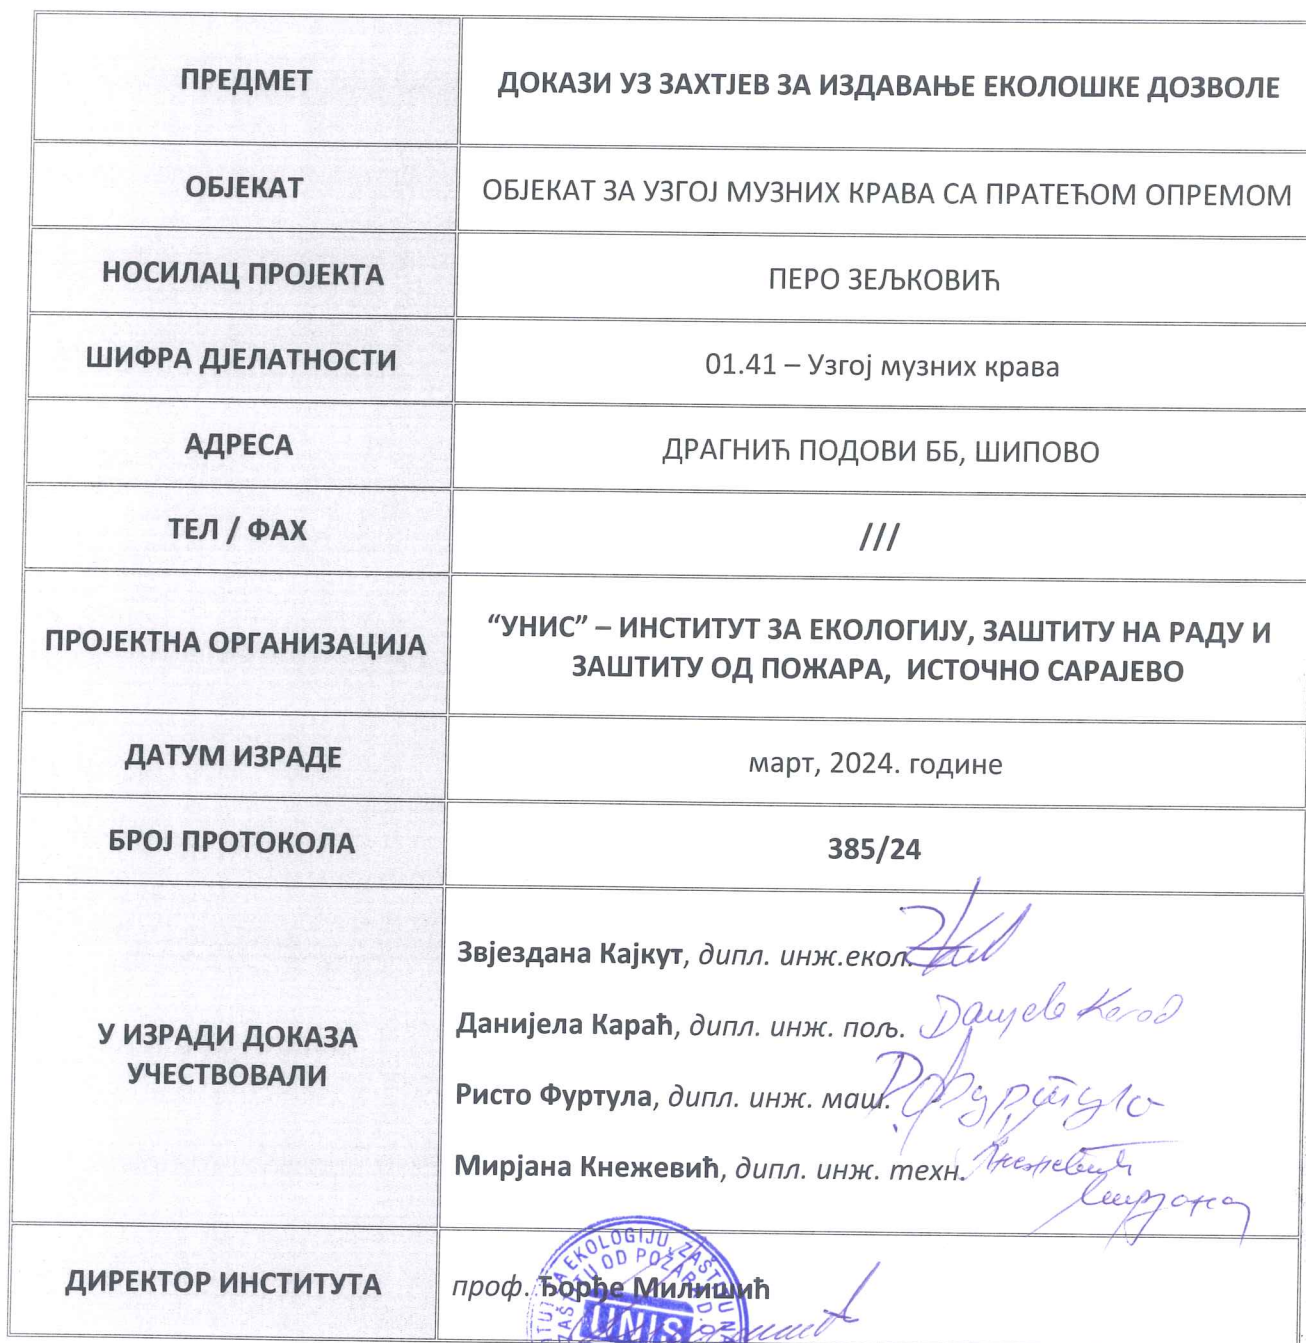 ПРЕДМЕТ
ДОКАЗИ УЗ ЗАХТЈЕВ ЗА ИЗДАВАЊЕ ЕКОЛОШКЕ ДОЗВОЛЕ
ОБЈЕКАТ
ОБЈЕКАТ ЗА УЗГОЈ МУЗНИХ КРАВА СА ПРАТЕЋОМ ОПРЕМОМ
НОСИЛАЦ ПРОЈЕКТА
ПЕРО ЗЕЉКОВИЋ
ШИФРА ДЈЕЛАТНОСТИ
01.41 – Узгој музних крава
АДРЕСА
ДРАГНИЋ ПОДОВИ ББ, ШИПОВО
ТЕЛ / ФАХ
///
ПРОЈЕКТНА ОРГАНИЗАЦИЈА
“УНИС” – ИНСТИТУТ ЗА ЕКОЛОГИЈУ, ЗАШТИТУ НА РАДУ И
ЗАШТИТУ ОД ПОЖАРА, ИСТОЧНО САРАЈЕВО
ДАТУМ ИЗРАДЕ
март, 2024. године
БРОЈ ПРОТОКОЛА
385/24
У ИЗРАДИ ДОКАЗА
УЧЕСТВОВАЛИ
Звјездана Кајкут, дипл. инж.екол.
Данијела Караћ, дипл. инж. пољ.
Ристо Фуртула, дипл. инж. маш.
Р Фуртула
Мирјана Кнежевић, дипл. инж. техн.
Кнежевић
Мирјана
ДИРЕКТОР ИНСТИТУТА
проф. Ђорђе Милишић
EKOLOGIJU, ZAŠTITU NA
ZAŠTITU OD POŽARA D.O
UNIS